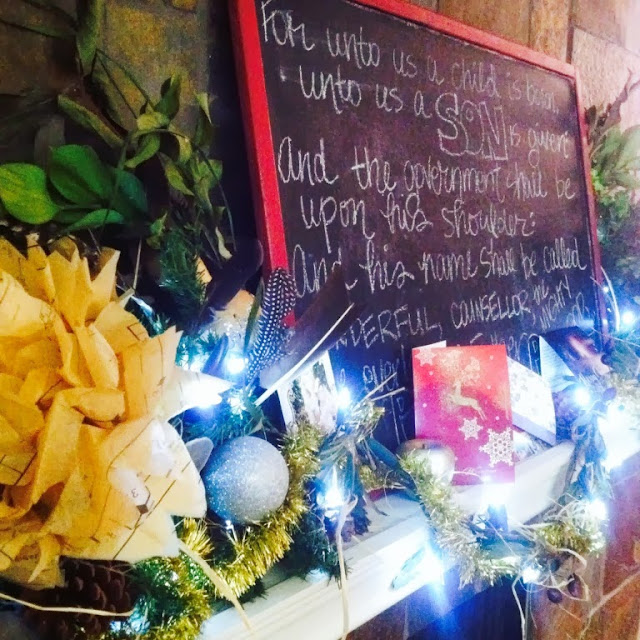 For unto us a child is born
unto us a SON is given
And the government shall be
upon his shoulder:
And his name shall be called
WONDERFUL COUNSELLOR THE
MIGHTY